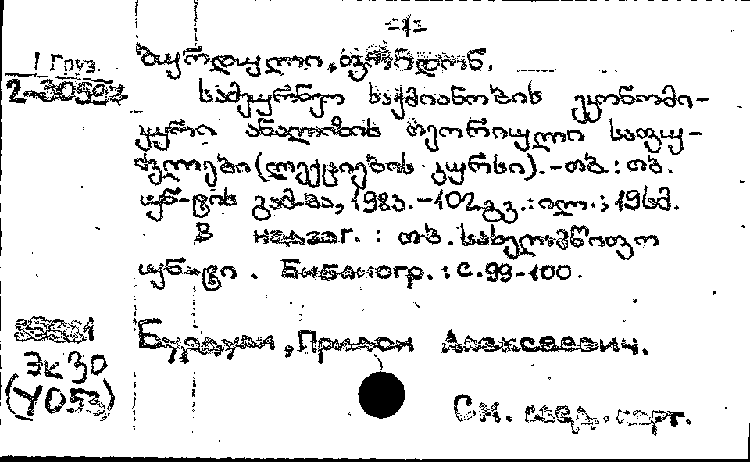 -1-
1 Груз.
2-30592
ბურდული, ფრიდონ.
სამეურნეო საქმიანობის ეკონომი-
კური ანალიზის თეორიული საფუ-
ძვლები (ლექციების კურსი). -თბ.: თბ.
უნ-ტის გამ-ბა, 198ა. -102გვ.: ილ.; 19სმ.
В надзаг. : თბ. სახელმწიფო
უნ-ტი. Библиогр. : с. 99-100.
Бурдули, Придон Алексеевич.
Эк 30
(У053)
См. след. карт.